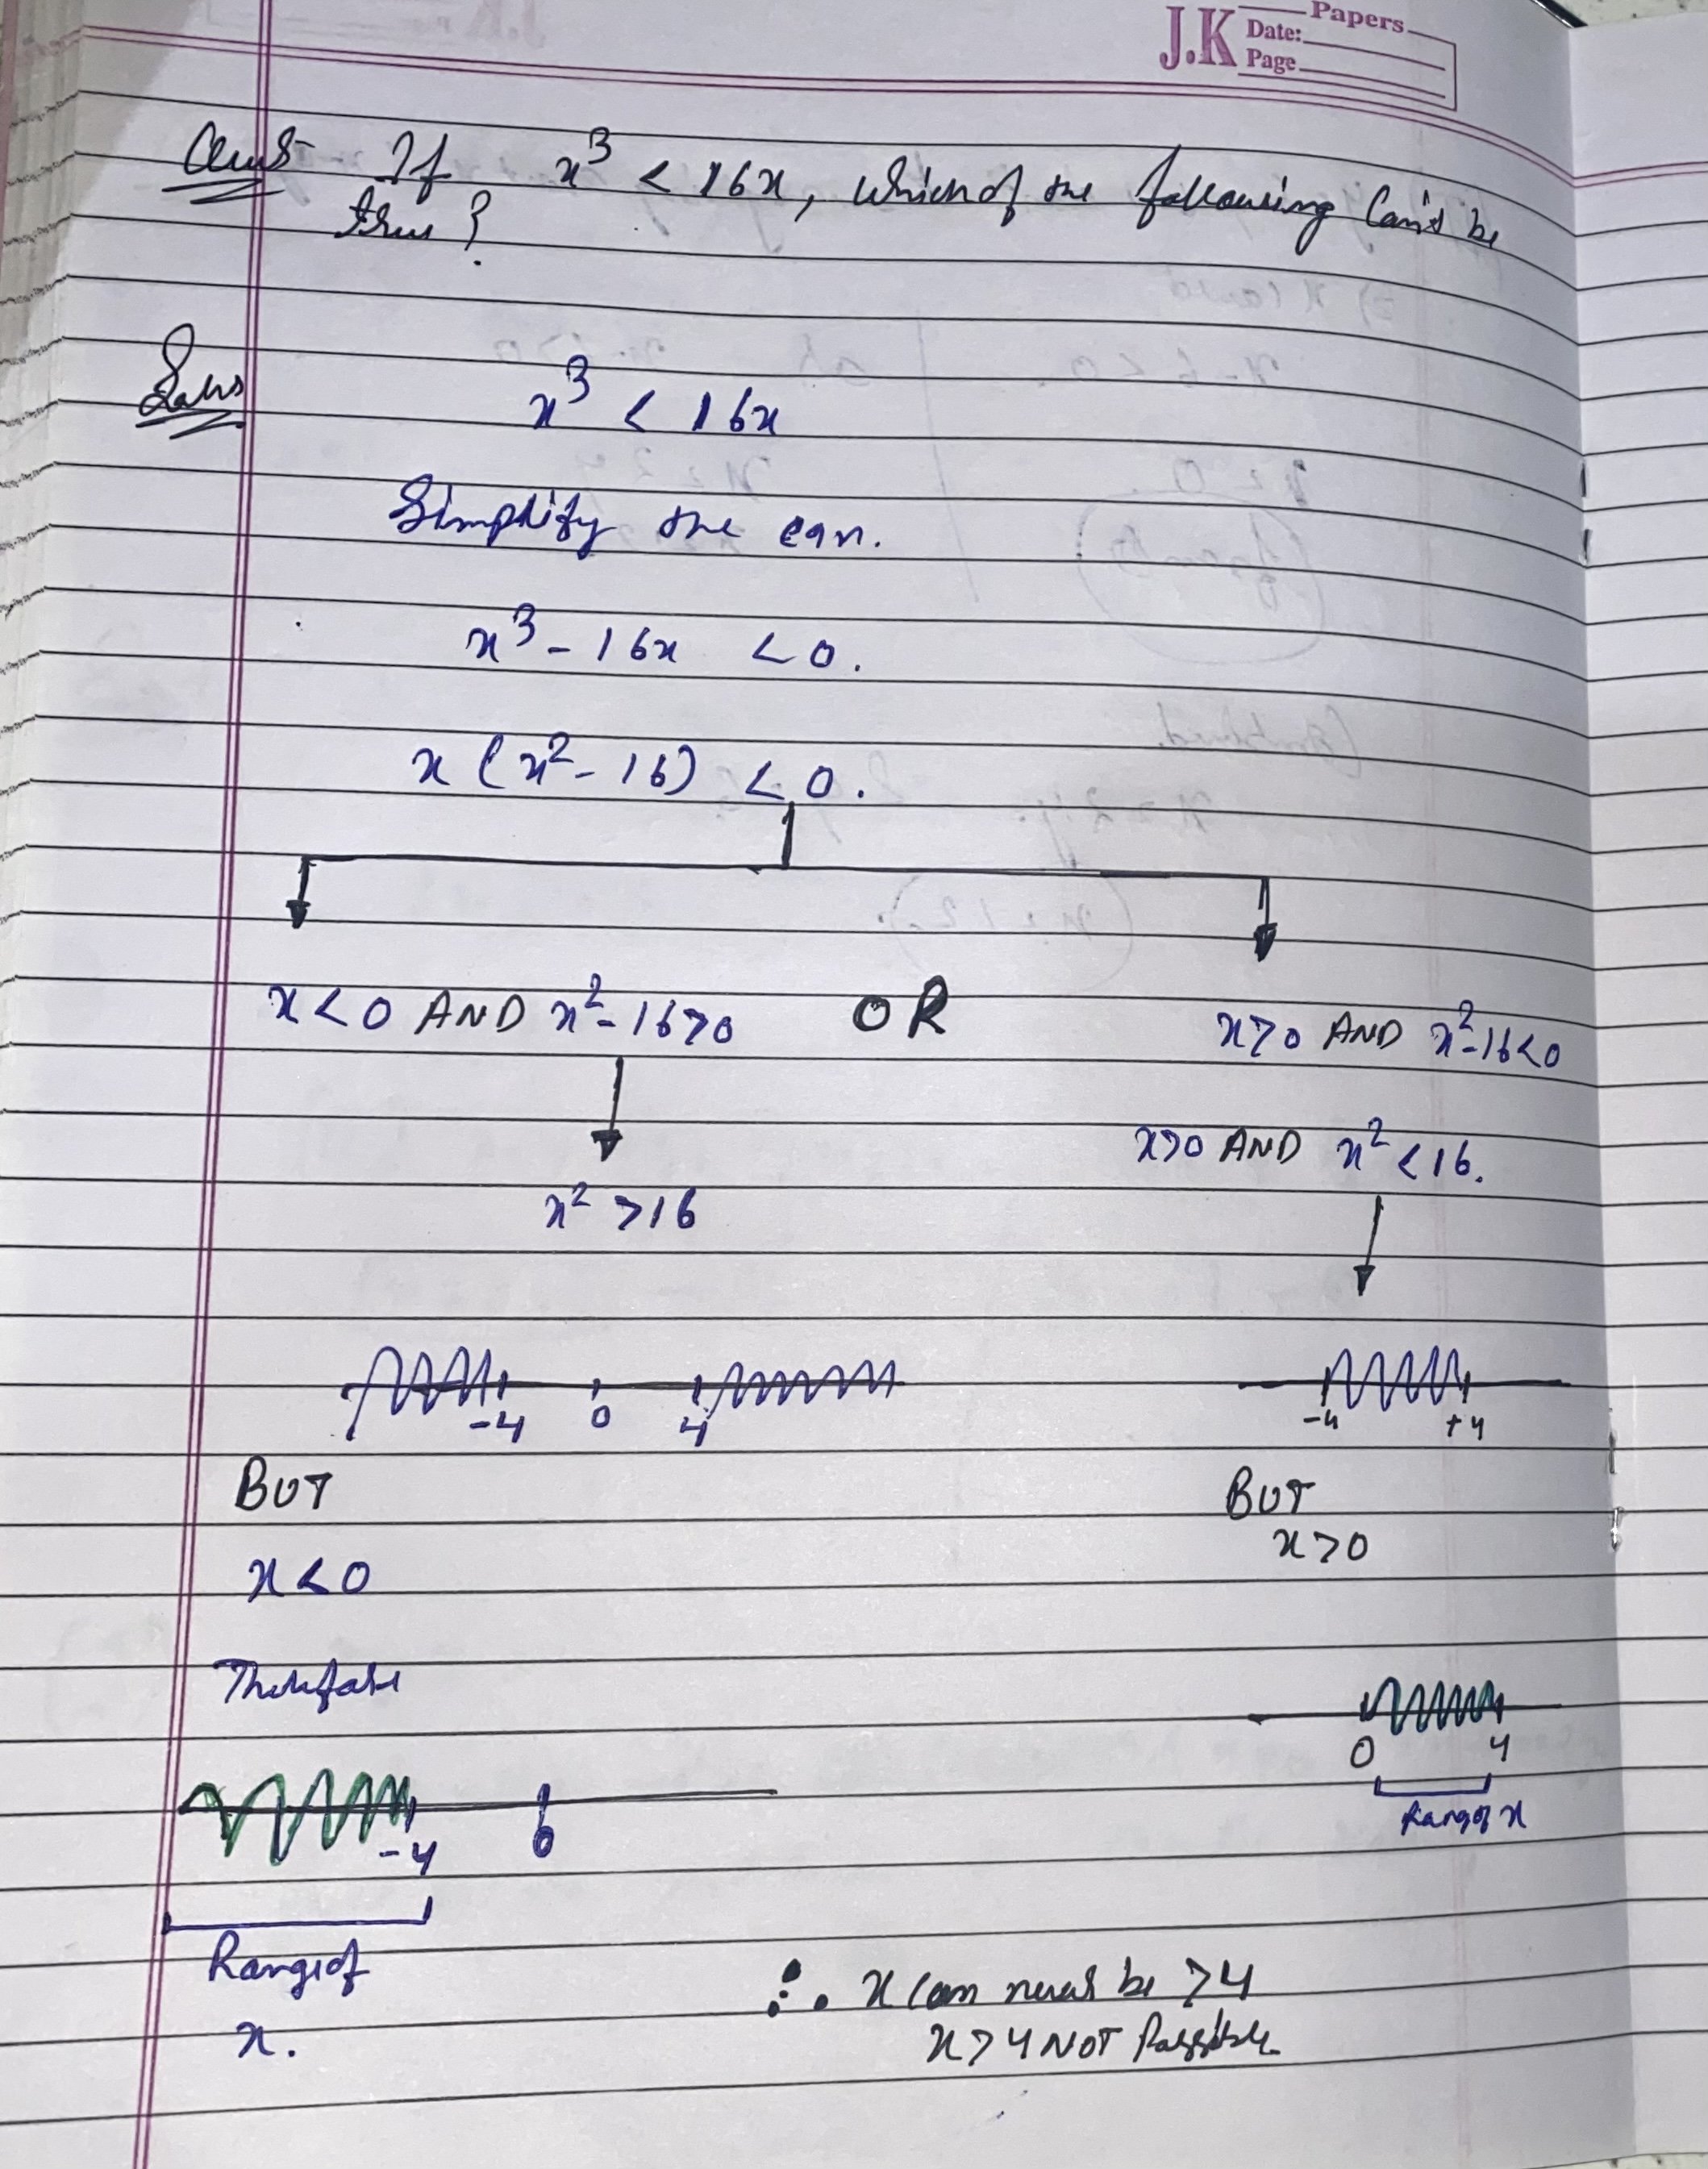 J.K Papers
Date:
Page
Ques If x³ < 16x, which of the following can't be
true ?
Solns
x³ < 16x
Simplify the eqn.
x³ - 16x < 0.
x (x² - 16) < 0.
x < 0 AND x² - 16 > 0 OR x > 0 AND x² - 16 < 0
x > 0 AND x² < 16.
x² > 16
-4 0 4 -4 +4
BUT BUT
x < 0 x > 0
Therefore
0 4
Range of x
-4 0
Range of
x.
∴ x can never be > 4
x > 4 NOT Possible